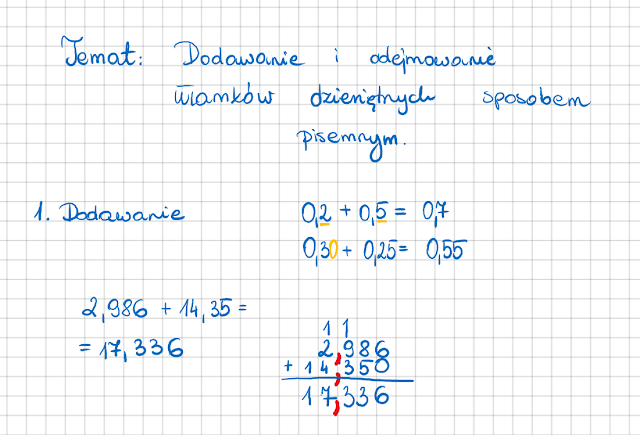 Temat: Dodawanie i odejmowanie
ułamków dziesiętnych sposobem
pisemnym.
1. Dodawanie
0,2 + 0,5 = 0,7
0,30 + 0,25 = 0,55
2,986 + 14,35 =
= 17,336
1 1
2,986
+ 14,350
17,336